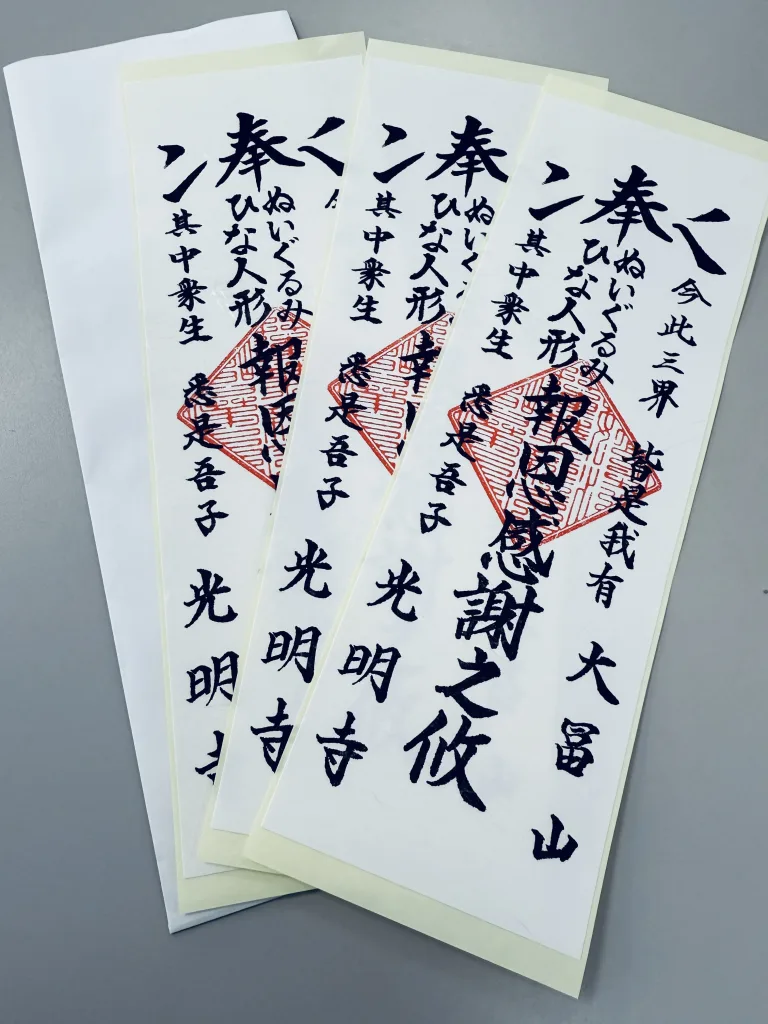 今此三界 皆是我有
大冨山
奉
ぬいぐるみ
ひな人形
報恩感謝之攸
其中衆生 悉是吾子
光明寺
奉
ぬいぐ
ひな人形
其中衆生 悉是吾子
光明寺
奉
ぬいぐるみ
ひな人形
報恩
其中衆生 悉是吾子
光明寺